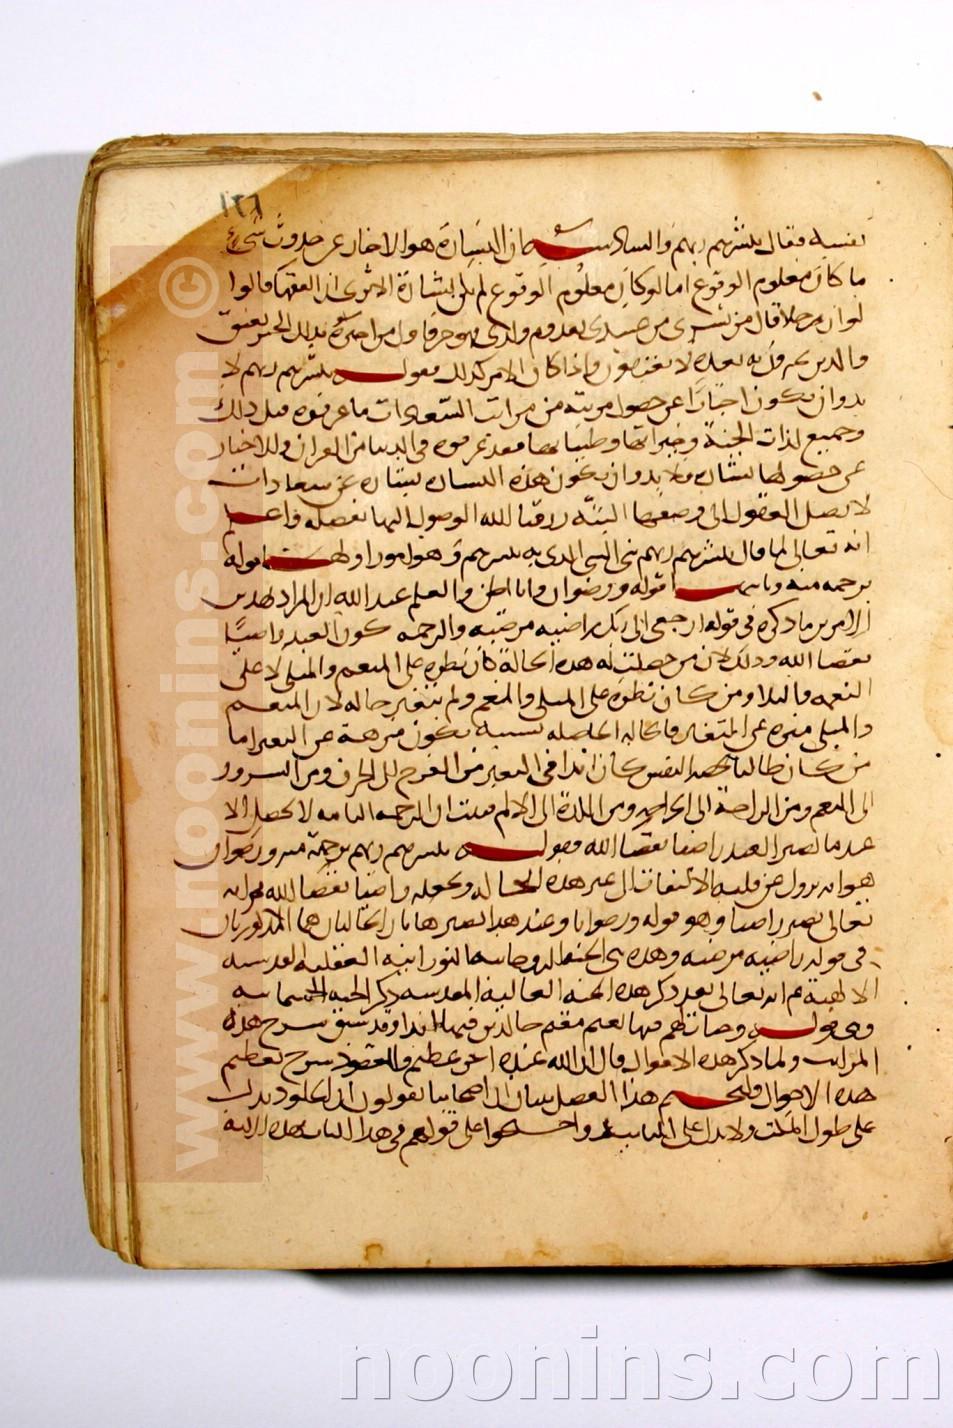 ١٢٦
نفسه فقال يبشرهم ربهم والسادسة ان البشارة هو الاخبار عن حدوث شيء
ما كان معلوم الوقوع اما لو كان معلوم الوقوع لم يكن بشارة الا ترى ان الفقها قالوا
لو ان رجلا قال من يبشرني من عبيدي بقدوم ولدي فهو حر فاول من اخبره بذلك الخبر يعتق
والذين يخبرونه بعده لا يعتقون واذا كان الامر كذلك فقوله يبشرهم ربهم لا
بد وان يكون اخبارا عن حصول مرتبة من مراتب السعادات ما عرفوه قبل ذلك
وجميع لذات الجنة وخيراتها وطيباتها فقد عرفوه في الدنيا من القران والاخبار
عن حصولها بشارة فلا بد وان تكون هذه البشارة بشارة عن سعادات
لا يصل العقول الى وصفها البتة رزقنا الله الوصول اليها بفضله واعلم
انه تعالى لما قال يبشرهم ربهم بين الشي الذي به يبشرهم وهو امور اولها قوله
برحمة منه وثانيها قوله ورضوان وانا اظن والعلم عند الله ان المراد بهذين
الامرين ما ذكره في قوله ارجعي الى ربك راضية مرضية والرحمة كون العبد راضيا
بقضا الله وذلك لان من حصلت له هذه الحالة كان نظره على المنعم والمبلي لا على
النعمة والبلا ومن كان نظره على المبلي والمنعم لم يتغير حاله لان المنعم
والمبلي منزه عن المتغير فالحالة الحاصلة بسببه تكون منزهة عن التغير اما
من كان طالبا لمحض النفس كان ابدا في التغير من الفرح الى الحزن ومن السرور
الى الغم ومن الراحة الى الجراحة ومن اللذة الى الالم فثبت ان الرحمة التامة لا تحصل الا
عندما يصير العبد راضيا بقضا الله فقوله يبشرهم ربهم برحمة منه ورضوان
هو انه يزول عن قلبه الالتفات الى غير هذه الحالة ويجعله راضيا بقضا الله ثم انه
تعالى يصير راضيا وهو قوله ورضوان وعند هذا تصير هاتان الحالتان هما المذكورتان
في قوله راضية مرضية وهذه هي الجنة الروحانية النورانية العقلية القدسية
الالهية ثم انه تعالى بعد ذكر هذه الجنة العالية المقدسة ذكر الجنة الجسمانية
وهي قوله وجنات لهم فيها نعيم مقيم خالدين فيها ابدا وقد سبق شرح هذه
المراتب ولما ذكر هذه الاحوال قال ان الله عنده اجر عظيم والمقصود شرح تعظيم
هذه الاحوال ولنختم هذا الفصل ببيان ان اصحابنا يقولون ان الخلود يدل
على طول المكث ولا يدل على التابيد واحتجوا على قولهم في هذا الباب بهذه الاية
www.noonins.com ©
noonins.com